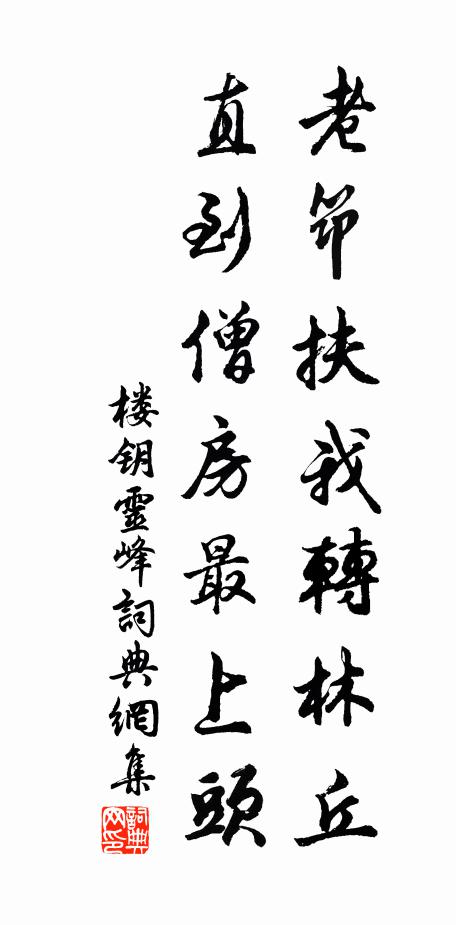 老筇扶我轉林丘
直到僧房最上頭
楼钥靈峰詞典網集
詞典网印